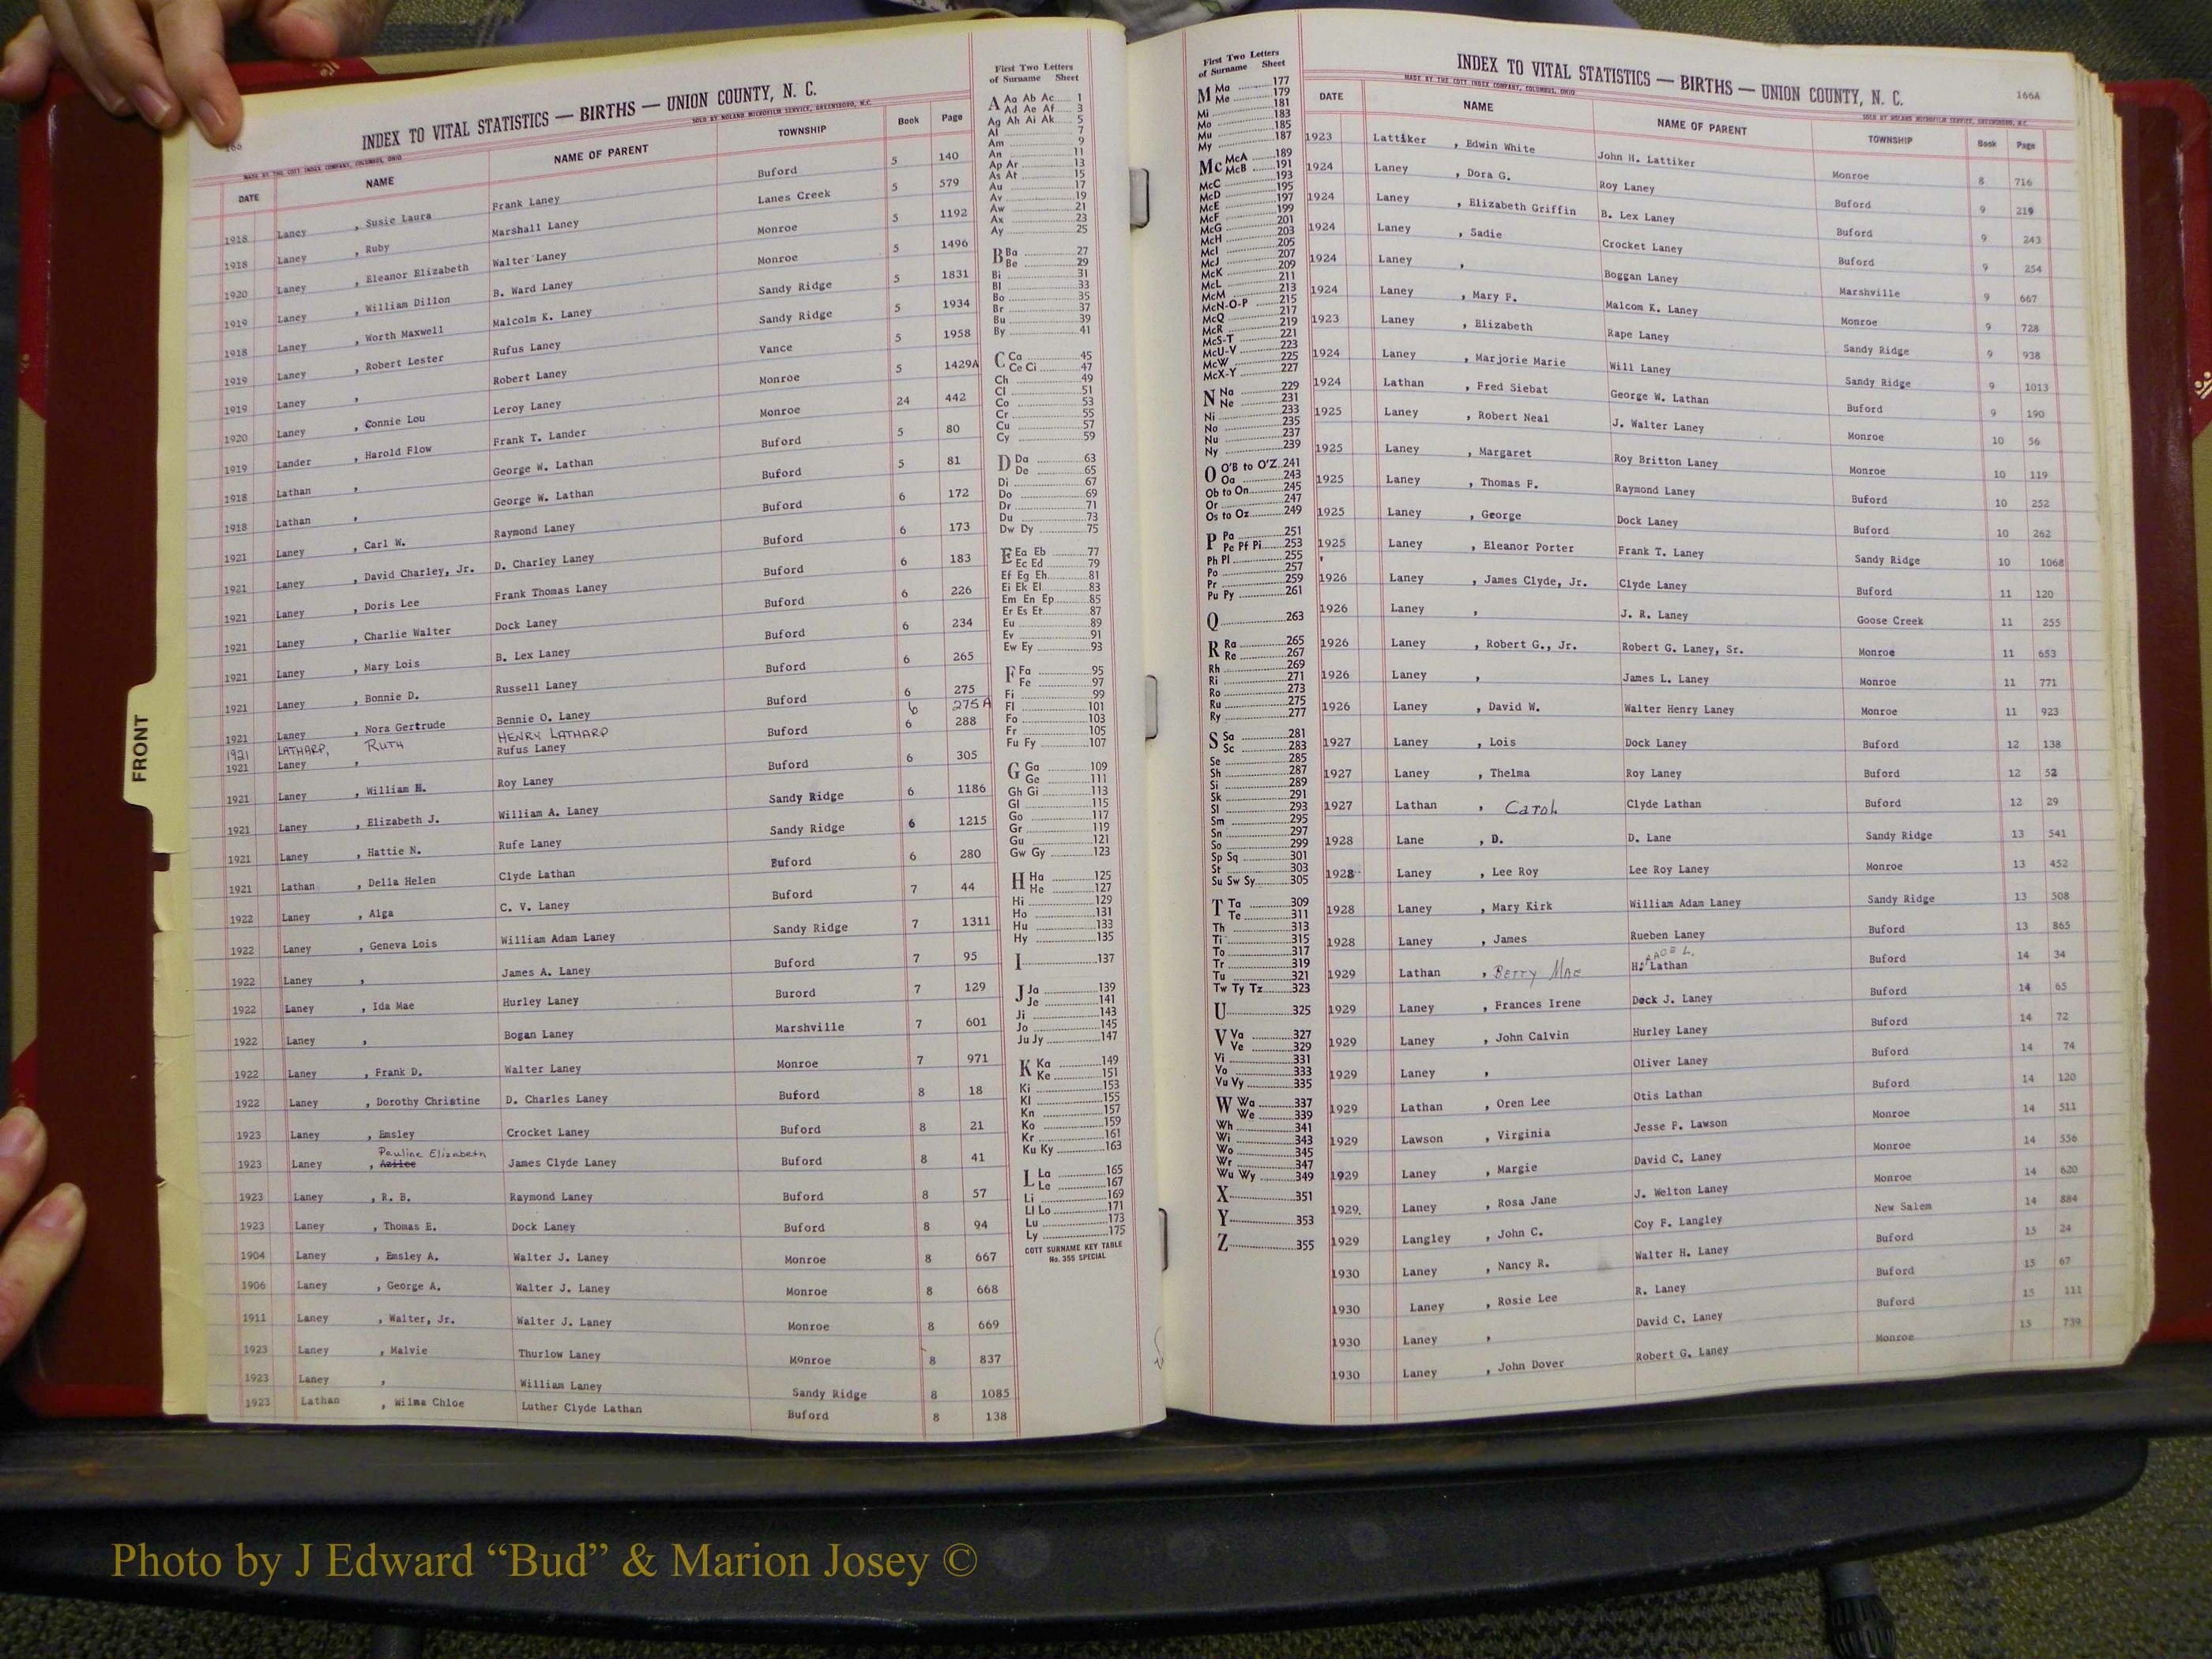 166
INDEX TO VITAL STATISTICS — BIRTHS — UNION COUNTY, N. C.
MADE BY THE COTT INDEX COMPANY, COLUMBUS, OHIO SOLD BY NOLAND MICROFILM SERVICE, GREENSBORO, N.C.
DATE NAME NAME OF PARENT TOWNSHIP Book Page
1918 Laney , Susie Laura Frank Laney Buford 5 140
1918 Laney , Ruby Marshall Laney Lanes Creek 5 579
1920 Laney , Eleanor Elizabeth Walter Laney Monroe 5 1192
1919 Laney , William Dillon B. Ward Laney Monroe 5 1496
1918 Laney , Worth Maxwell Malcolm K. Laney Sandy Ridge 5 1831
1919 Laney , Robert Lester Rufus Laney Sandy Ridge 5 1934
1919 Laney , Robert Laney Vance 5 1958
1920 Laney , Connie Lou Leroy Laney Monroe 5 1429A
1919 Lander , Harold Flow Frank T. Lander Monroe 24 442
1918 Lathan , George W. Lathan Buford 5 80
1918 Lathan , George W. Lathan Buford 5 81
1921 Laney , Carl W. Raymond Laney Buford 6 172
1921 Laney , David Charley, Jr. D. Charley Laney Buford 6 173
1921 Laney , Doris Lee Frank Thomas Laney Buford 6 183
1921 Laney , Charlie Walter Dock Laney Buford 6 226
1921 Laney , Mary Lois B. Lex Laney Buford 6 234
1921 Laney , Bonnie D. Russell Laney Buford 6 265
1921 Laney , Nora Gertrude Bennie O. Laney Buford 6 275
1921 LATHARP, RUTH HENRY LATHARP 6 275A
1921 Laney , Rufus Laney Buford 6 288
1921 Laney , William H. Roy Laney Buford 6 305
1921 Laney , Elizabeth J. William A. Laney Sandy Ridge 6 1186
1921 Laney , Hattie N. Rufe Laney Sandy Ridge 6 1215
1921 Lathan , Della Helen Clyde Lathan Buford 6 280
1922 Laney , Alga C. V. Laney Buford 7 44
1922 Laney , Geneva Lois William Adam Laney Sandy Ridge 7 1311
1922 Laney , James A. Laney Buford 7 95
1922 Laney , Ida Mae Hurley Laney Burord 7 129
1922 Laney , Bogan Laney Marshville 7 601
1922 Laney , Frank D. Walter Laney Monroe 7 971
1922 Laney , Dorothy Christine D. Charles Laney Buford 8 18
1923 Laney , Emsley Crocket Laney Buford 8 21
Pauline Elizabeth
1923 Laney , James Clyde Laney Buford 8 41
1923 Laney , R. B. Raymond Laney Buford 8 57
1923 Laney , Thomas E. Dock Laney Buford 8 94
1904 Laney , Emsley A. Walter J. Laney Monroe 8 667
1906 Laney , George A. Walter J. Laney Monroe 8 668
1911 Laney , Walter, Jr. Walter J. Laney Monroe 8 669
1923 Laney , Malvie Thurlow Laney Monroe 8 837
1923 Laney , William Laney Sandy Ridge 8 1085
1923 Lathan , Wilma Chloe Luther Clyde Lathan Buford 8 138
First Two Letters
of Surname Sheet
A Aa Ab Ac 1
Ad Ae Af 3
Ag Ah Ai Ak 5
Al 7
Am 9
An 11
Ap Ar 13
As At 15
Au 17
Av 19
Aw 21
Ax 23
Ay 25
B Ba 27
Be 29
Bi 31
Bl 33
Bo 35
Br 37
Bu 39
By 41
C Ca 45
Ce Ci 47
Ch 49
Cl 51
Co 53
Cr 55
Cu 57
Cy 59
D Da 63
De 65
Di 67
Do 69
Dr 71
Du 73
Dw Dy 75
E Ea Eb 77
Ec Ed 79
Ef Eg Eh 81
Ei Ek El 83
Em En Ep 85
Er Es Et 87
Eu 89
Ev 91
Ew Ey 93
F Fa 95
Fe 97
Fi 99
Fl 101
Fo 103
Fr 105
Fu Fy 107
G Ga 109
Ge 111
Gh Gi 113
Gl 115
Go 117
Gr 119
Gu 121
Gw Gy 123
H Ha 125
He 127
Hi 129
Ho 131
Hu 133
Hy 135
I 137
J Ja 139
Je 141
Ji 143
Jo 145
Ju Jy 147
K Ka 149
Ke 151
Ki 153
Kl 155
Kn 157
Ko 159
Kr 161
Ku Ky 163
L La 165
Le 167
Li 169
Ll Lo 171
Lu 173
Ly 175
COTT SURNAME KEY TABLE
No. 355 SPECIAL
FRONT
First Two Letters
of Surname Sheet
M Ma 177
Me 179
Mi 181
Mo 183
Mu 185
My 187
Mc McA 189
McB 191
McC 193
McD 195
McE 197
McF 199
McG 201
McH 203
McI 205
McJ 207
McK 209
McL 211
McM 213
McN-O-P 215
McQ 217
McR 219
McS-T 221
McU-V 223
McW 225
McX-Y 227
N Na 229
Ne 231
Ni 233
No 235
Nu 237
Ny 239
O O'B to O'Z 241
Oa 243
Ob to On 245
Or 247
Os to Oz 249
P Pa 251
Pe Pf Pi 253
Ph Pl 255
Po 257
Pr 259
Pu Py 261
Q 263
R Ra 265
Re 267
Rh 269
Ri 271
Ro 273
Ru 275
Ry 277
S Sa 281
Sc 283
Se 285
Sh 287
Si 289
Sk 291
Sl 293
Sm 295
Sn 297
So 299
Sp Sq 301
St 303
Su Sw Sy 305
T Ta 309
Te 311
Th 313
Ti 315
To 317
Tr 319
Tu 321
Tw Ty Tz 323
U 325
V Va 327
Ve 329
Vi 331
Vo 333
Vu Vy 335
W Wa 337
We 339
Wh 341
Wi 343
Wo 345
Wr 347
Wu Wy 349
X 351
Y 353
Z 355
INDEX TO VITAL STATISTICS — BIRTHS — UNION COUNTY, N. C. 166A
MADE BY THE COTT INDEX COMPANY, COLUMBUS, OHIO SOLD BY NOLAND MICROFILM SERVICE, GREENSBORO, N.C.
DATE NAME NAME OF PARENT TOWNSHIP Book Page
1923 Lattiker , Edwin White John H. Lattiker Monroe 8 716
1924 Laney , Dora G. Roy Laney Buford 9 219
1924 Laney , Elizabeth Griffin B. Lex Laney Buford 9 243
1924 Laney , Sadie Crocket Laney Buford 9 254
1924 Laney , Boggan Laney Marshville 9 667
1924 Laney , Mary F. Malcom K. Laney Monroe 9 728
1923 Laney , Elizabeth Rape Laney Sandy Ridge 9 938
1924 Laney , Marjorie Marie Will Laney Sandy Ridge 9 1013
1924 Lathan , Fred Siebat George W. Lathan Buford 9 190
1925 Laney , Robert Neal J. Walter Laney Monroe 10 56
1925 Laney , Margaret Roy Britton Laney Monroe 10 119
1925 Laney , Thomas F. Raymond Laney Buford 10 252
1925 Laney , George Dock Laney Buford 10 262
1925 Laney , Eleanor Porter Frank T. Laney Sandy Ridge 10 1068
1926 Laney , James Clyde, Jr. Clyde Laney Buford 11 120
1926 Laney , J. R. Laney Goose Creek 11 255
1926 Laney , Robert G., Jr. Robert G. Laney, Sr. Monroe 11 653
1926 Laney , James L. Laney Monroe 11 771
1926 Laney , David W. Walter Henry Laney Monroe 11 923
1927 Laney , Lois Dock Laney Buford 12 138
1927 Laney , Thelma Roy Laney Buford 12 52
1927 Lathan , Carol Clyde Lathan Buford 12 29
1928 Lane , D. D. Lane Sandy Ridge 13 541
1928 Laney , Lee Roy Lee Roy Laney Monroe 13 452
1928 Laney , Mary Kirk William Adam Laney Sandy Ridge 13 508
1928 Laney , James Rueben Laney Buford 13 865
1929 Lathan , BETTY MAE H. Lathan Buford 14 34
1929 Laney , Frances Irene Dock J. Laney Buford 14 65
1929 Laney , John Calvin Hurley Laney Buford 14 72
1929 Laney , Oliver Laney Buford 14 74
1929 Lathan , Oren Lee Otis Lathan Buford 14 120
1929 Lawson , Virginia Jesse F. Lawson Monroe 14 511
1929 Laney , Margie David C. Laney Monroe 14 556
1929 Laney , Rosa Jane J. Welton Laney Monroe 14 620
1929 Langley , John C. Coy F. Langley New Salem 14 884
1930 Laney , Nancy R. Walter H. Laney Buford 15 24
1930 Laney , Rosie Lee R. Laney Buford 15 67
1930 Laney , David C. Laney Buford 15 111
1930 Laney , John Dover Robert G. Laney Monroe 15 739
Photo by J Edward “Bud” & Marion Josey ©